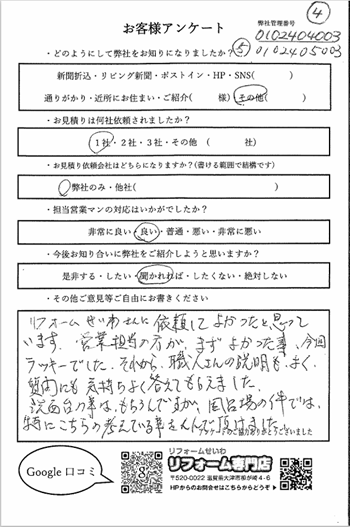 ④
お客様アンケート
弊社管理番号
0102404003
⑤ 0102405003
・どのようにして弊社をお知りになりましたか?
新聞折込・リビング新聞・ポストイン・HP・SNS( )
通りがかり・近所にお住まい・ご紹介( 様) その他( )
・お見積りは何社依頼されましたか?
1社・2社・3社・その他 ( 社)
・お見積り依頼会社はどちらになりますか?(書ける範囲で結構です)
弊社のみ・他社( )
・担当営業マンの対応はいかがでしたか?
非常に良い・良い・普通・悪い・非常に悪い
・今後お知り合いに弊社をご紹介しようと思いますか?
是非する・したい・聞かれれば・したくない・絶対しない
・その他ご意見等ご自由にお書きください
リフォームせいわさんに依頼してよかったと思って
います。営業担当の方が、まずよかった事、今回
ラッキーでした。それから、職人さんの説明も、よく、
質問にも気持ちよく答えてもらえました。
洗面台の事は、もちろんですが、風呂場の件では、
特にこちらの考えている事をくんで頂けました。
アンケートのご協力ありがとうございました
Google 口コミ
リフォームせいわ
リフォーム専門店
〒520-0022 滋賀県大津市柳が崎4-6
HPからのお問合せはこちらからどうぞ ▶